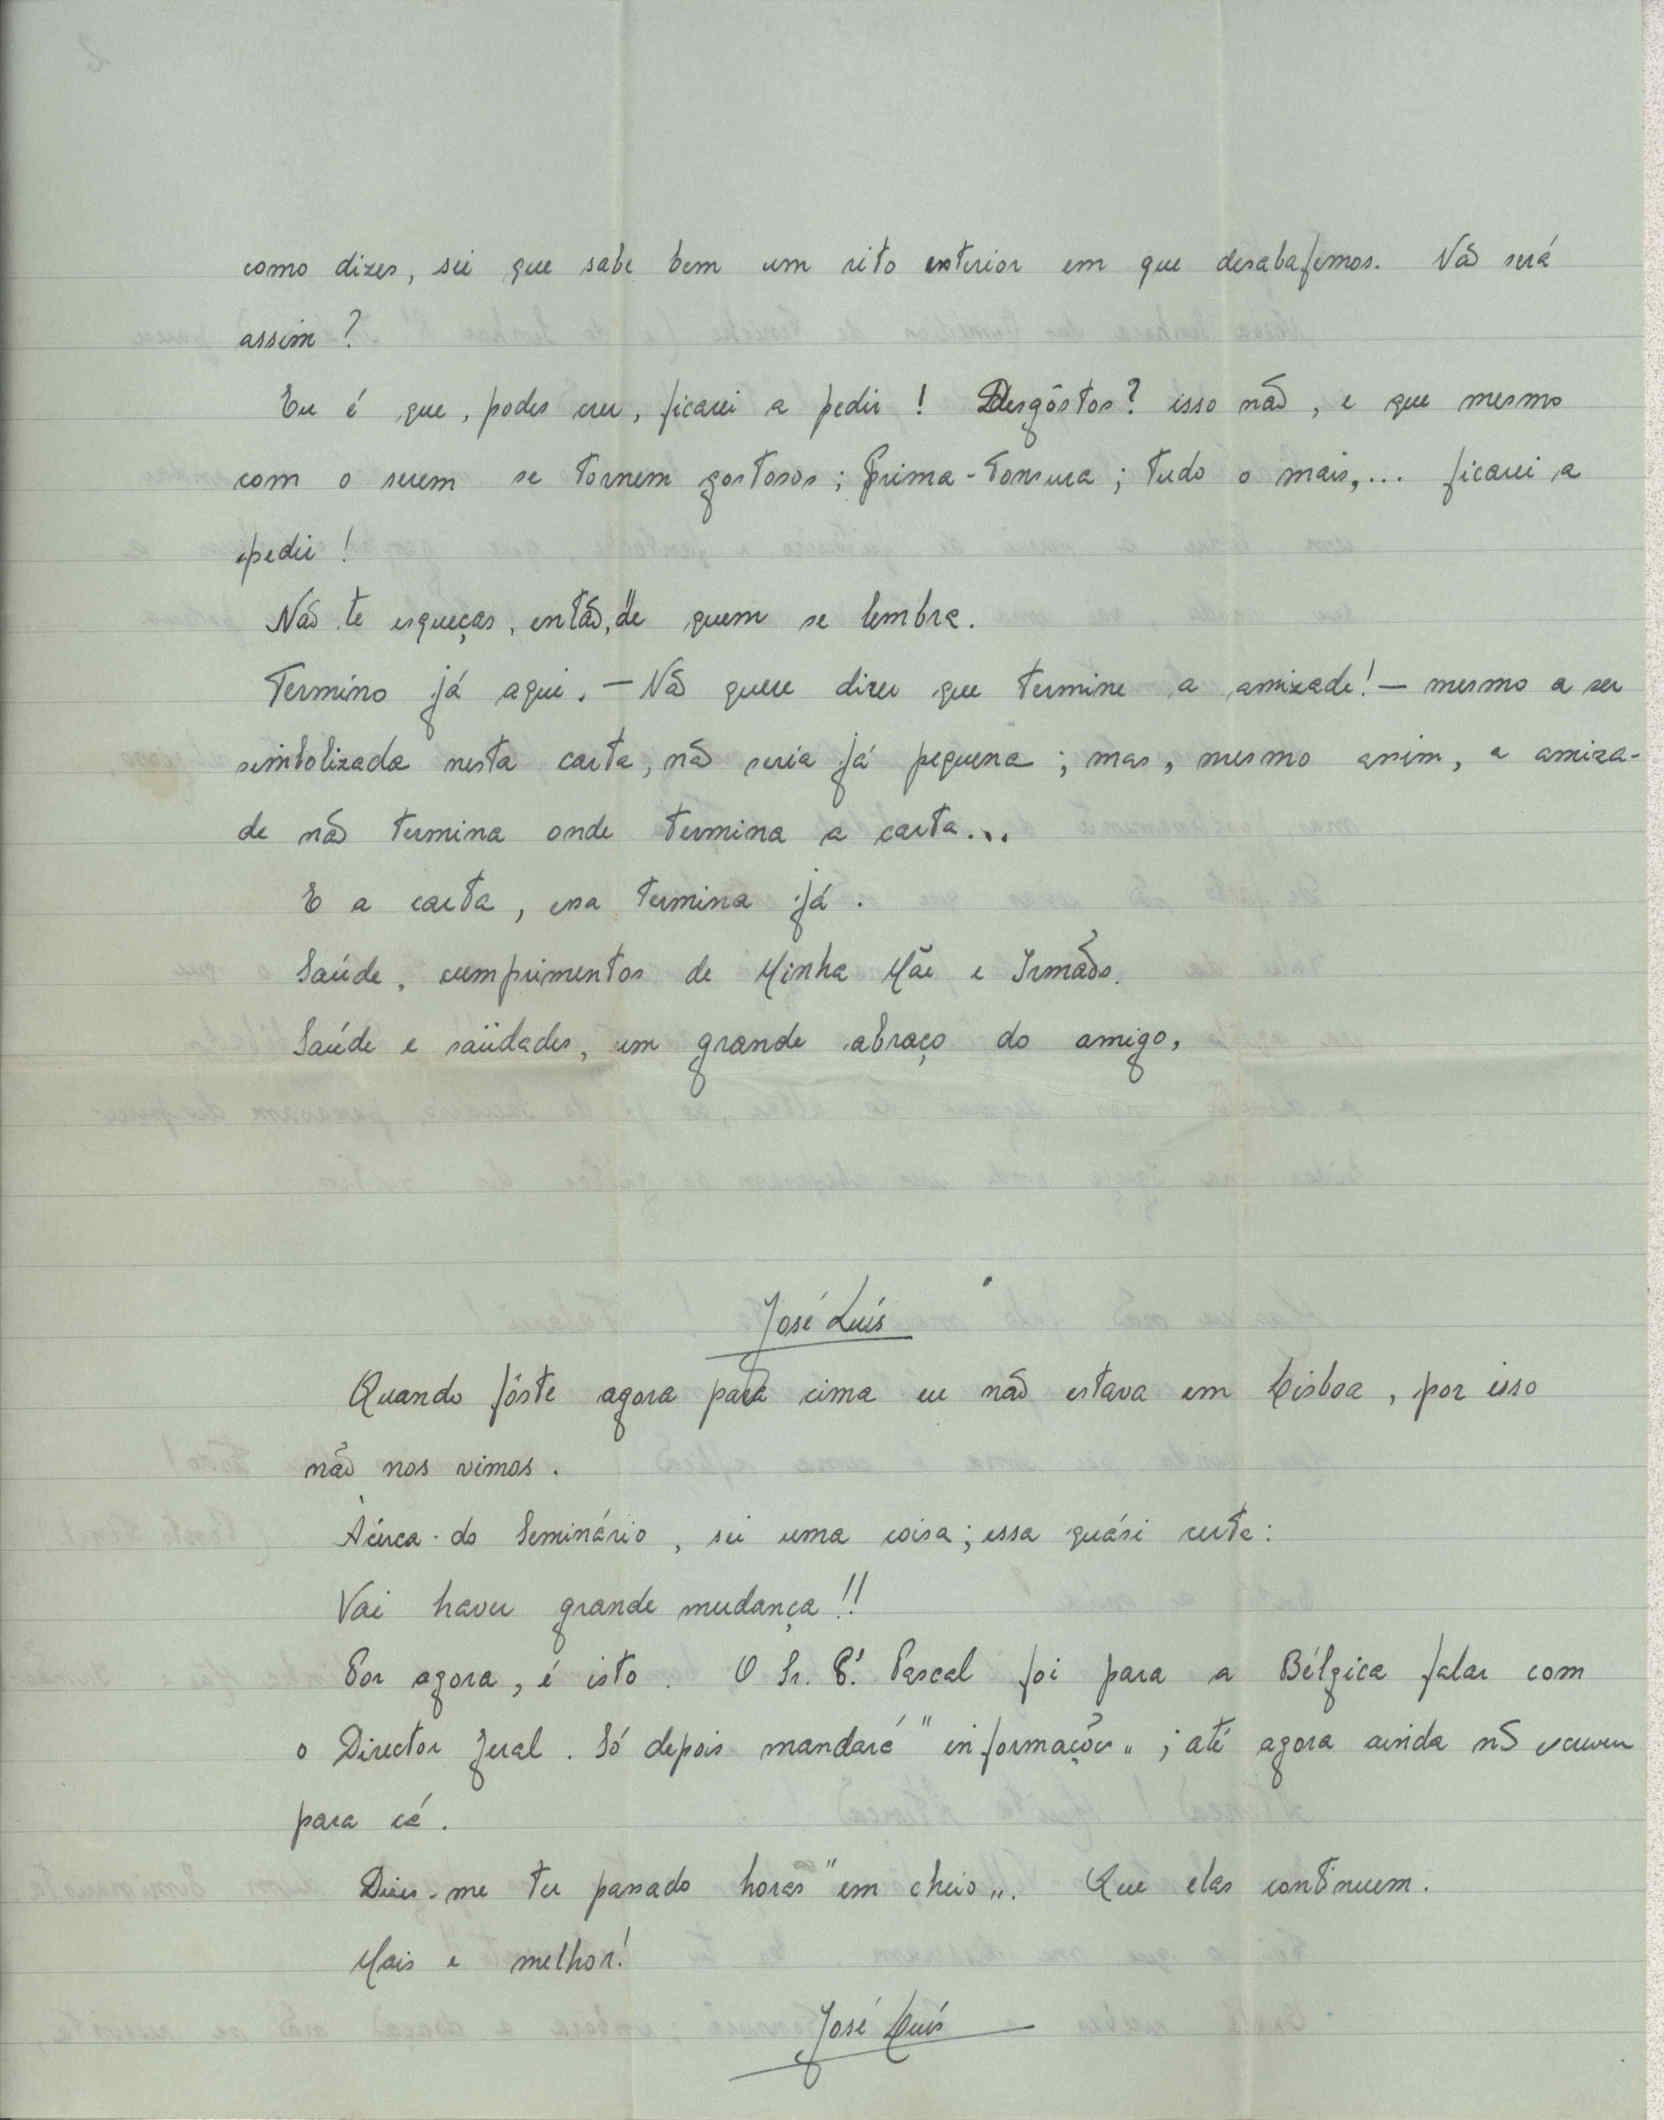 como dizes, sei que sabe bem um rito exterior em que desabafemos. Não será
assim?
Eu é que, podes crer, ficarei a pedir! Desgôstos? isso não, e que mesmo
com o serem se tornem gostosos; Prima-Tonsura; tudo o mais,... ficarei a
pedir!
Não te esqueças, então, de quem se lembra.
Termino já aqui. — Não quere dizer que termine a amizade! — mesmo a ser
simbolizada nesta carta, não seria já pequena; mas, mesmo assim, a amiza-
de não termina onde termina a carta...
E a carta, essa termina já.
Saúde, cumprimentos de Minha Mãe e Irmãos.
Saúde e saüdades, um grande abraço do amigo,
José Luís
Quando fôste agora para cima eu não estava em Lisboa, por isso
não nos vimos.
Àcêrca do Seminário, sei uma coisa; essa quási certa:
Vai haver grande mudança!!
Por agora, é isto. O Sr. P.e Pascal foi para a Bélgica falar com
o Director Geral. Só depois mandará "informações"; até agora ainda nã escreveu
para cá.
Dizes-me ter passado horas "em cheio". Que elas continuem.
Mais e melhor!
José Luís